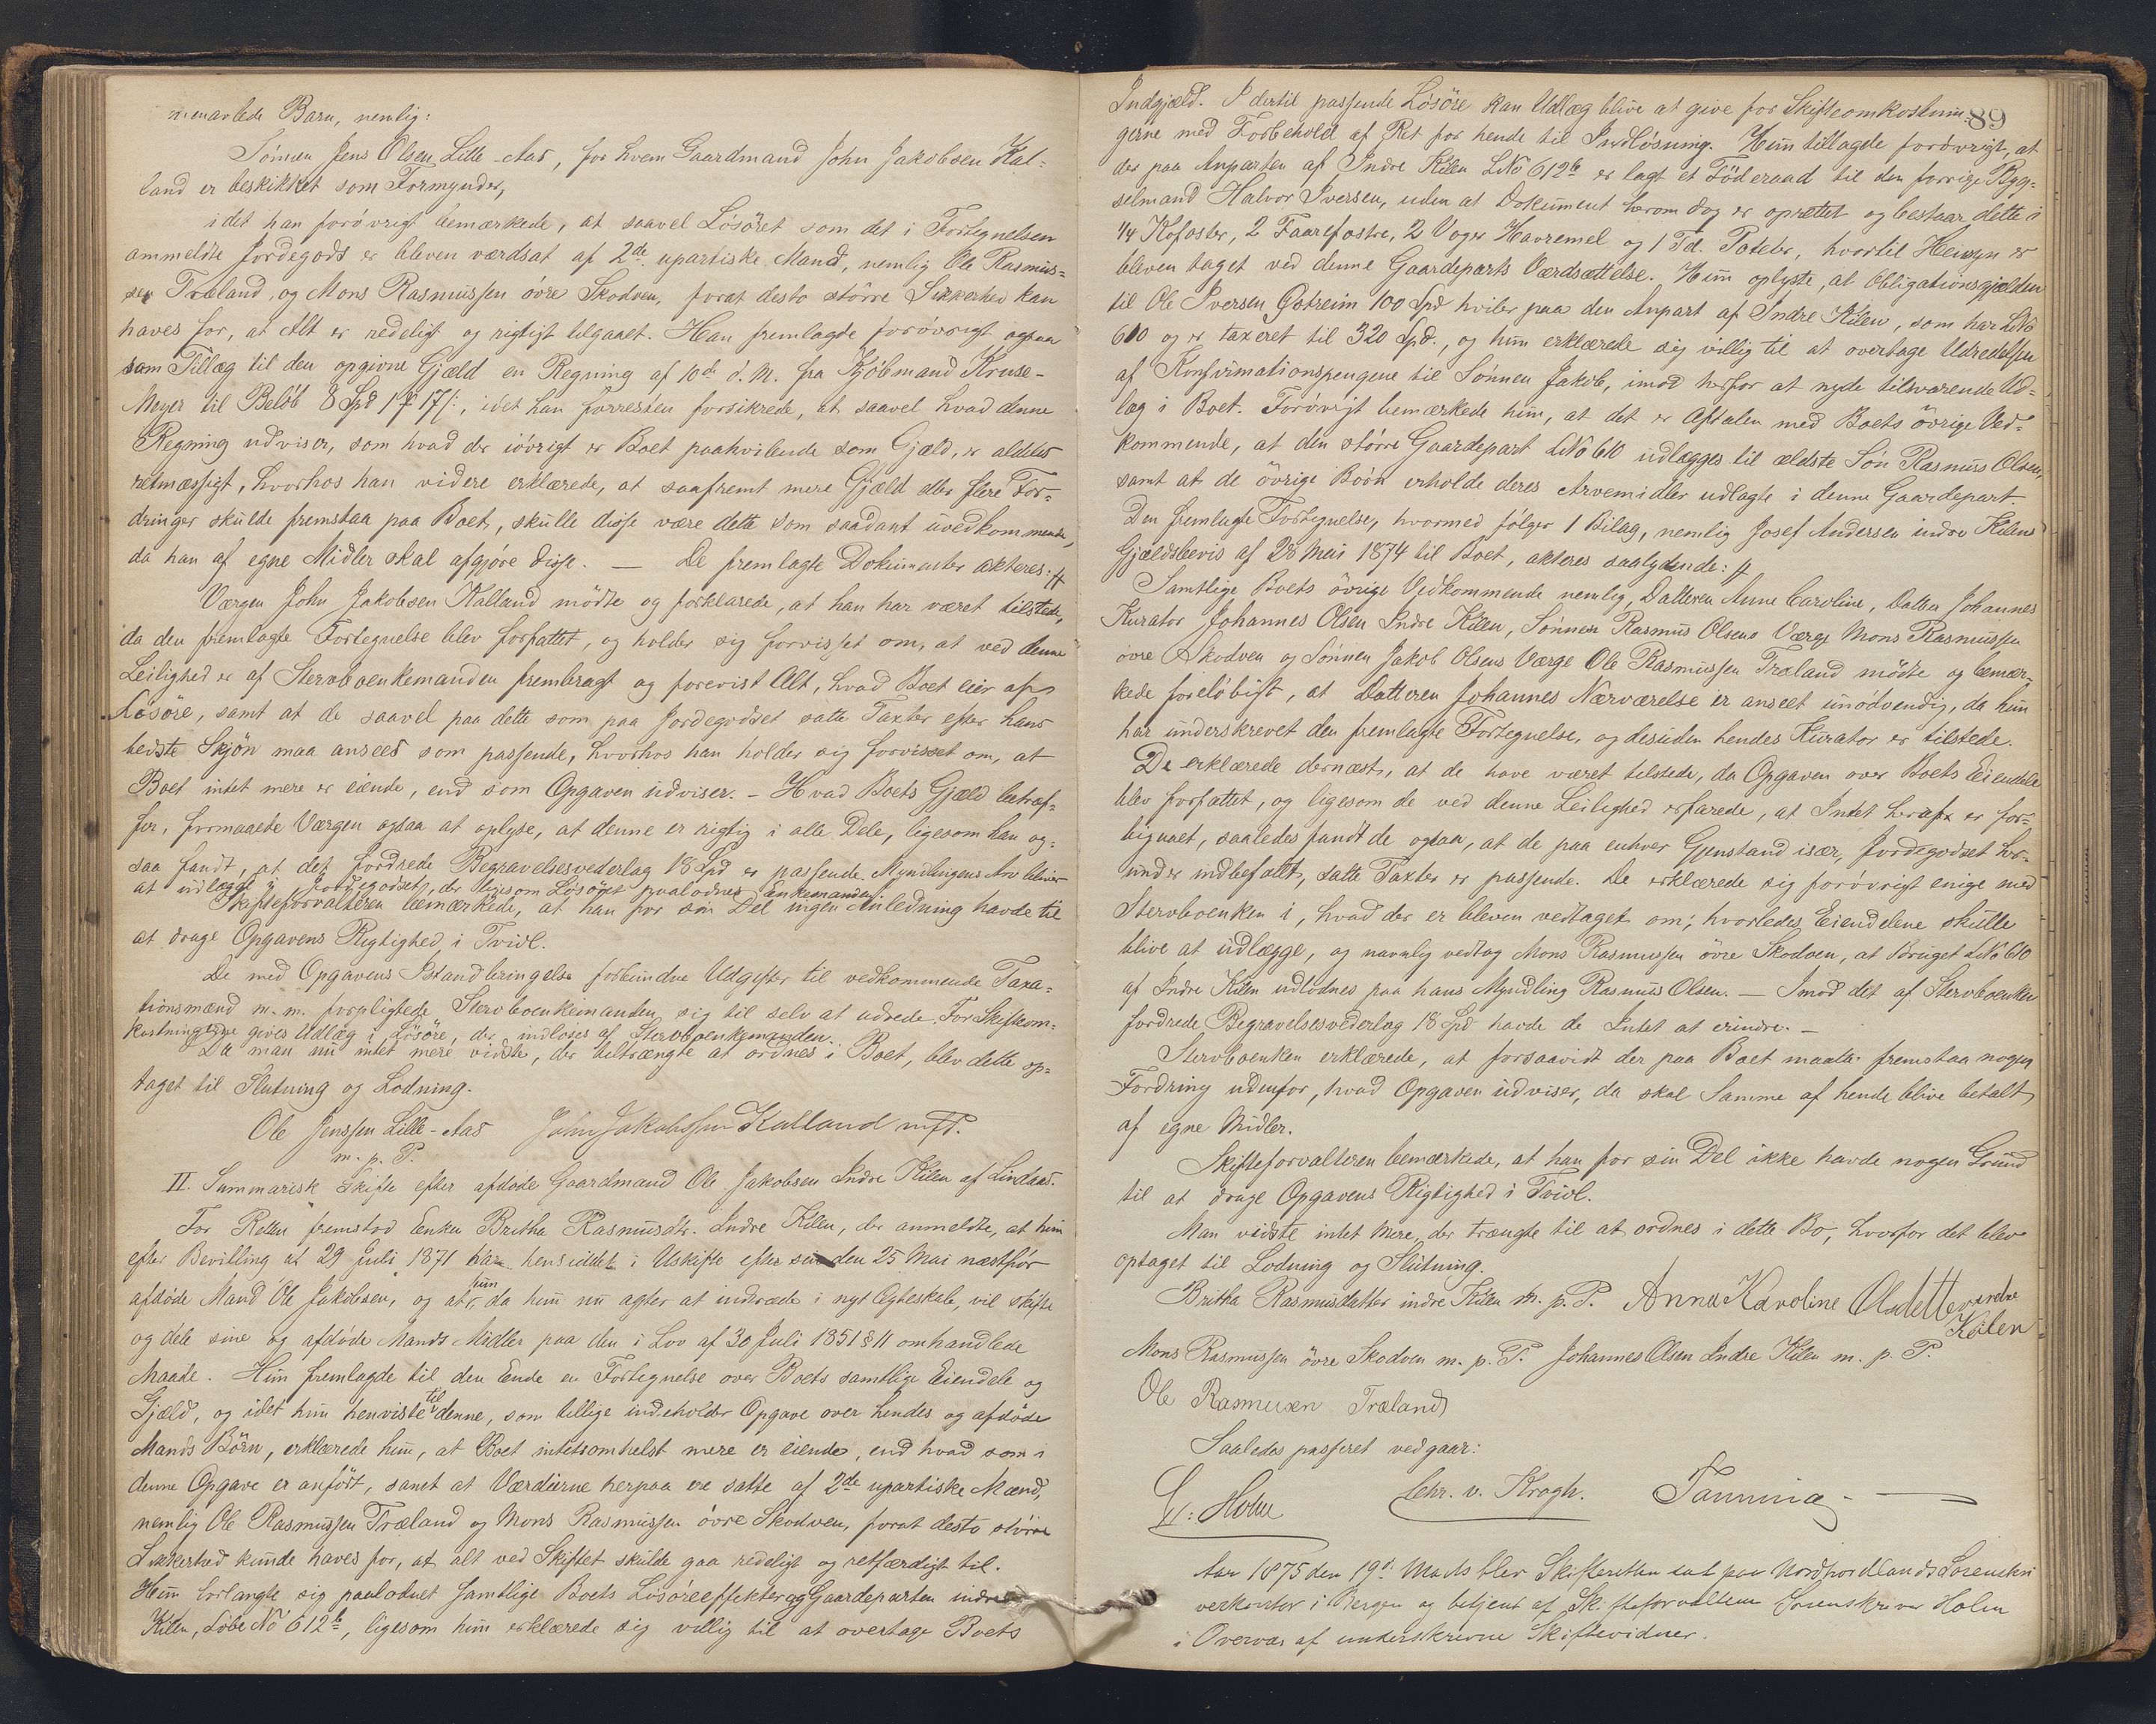 menavlede Barn, nemlig:
Sönnen Jens Olsen Lille-Aas, for hvem Gaardmand John Jakobsen Kal-
land er beskikket som Formynder,
idet han forövrigt bemærkede, at saavel Lösöret som det i Fortegnelsen
ammeldte Jordegods er bleven værdsat af 2de upartiske Mænd, nemlig Ole Rasmus-
sen Træland, og Mons Rasmussen övre Skodven, forat desto större Sikkerhed kan
haves for, at Alt er redeligt og rigtigt tilgaaet. Han fremlagde forövrigt ogsaa
som Tillæg til den opgivne Gjæld en Regning af 10de d. M. fra Kjöbmand Kruse-
Meyer til Belöb 8 Spd 1 ƒ 17 /:, idet han forresten forsikrede, at saavel hvad denne
Regning udviser, som hvad der iövrigt er Boet paahvilende som Gjæld, er aldeles
retmæssigt, hvorhos han videre erklærede, at saafremt mere Gjæld eller flere For-
dringer skulde fremstaa paa Boet, skulle disse være dette som saadant uvedkommende,
da han af egne Midler skal afgjöre disse. — De fremlagte Dokumenter akteres: #
Værgen John Jakobsen Kalland mödte og forklarede, at han har været tilstede,
da den fremlagte Fortegnelse blev forfattet, og holder sig forvisset om, at ved denne
Leilighed er af Stervboenkemanden frembragt og forevist Alt, hvad Boet eier af
Lösöre, samt at de saavel paa dette som paa Jordegodset satte Taxter efter hans
bedste Skjön maa ansees som passende, hvorhos han holder sig forvisset om, at
Boet intet mere er eiende, end som Opgaven udviser. - Hvad Boets Gjæld betræf-
fer, formaaede Værgen ogsaa at oplyse, at denne er rigtig i alle Dele, ligesom han og-
saa fandt, at det fordrede Begravelsesvederlag 18 Spd er passende. Myndlingens Arv bliver
at udlægge i Jordegodset, der ligesom Lösöret paalodnes Enkemanden.
Skifteforvalteren bemærkede, at han for sin Del ingen Anledning havde til
at drage Opgavens Rigtighed i Tvivl.
De med Opgavens Istandbringelse forbundne Udgifter til vedkommende Taxa-
tionsmænd m. m. forpligtede Stervboenkemanden sig til selv at udrede. For Skifteom-
kostningerne gives Udlæg i Lösöre, der indlöses af Stervboenkemanden.
Da man nu intet mere vidste, der tiltrængte at ordnes i Boet, blev dette op-
taget til Slutning og Lodning.
Ole Jenssen Lille-Aas John Jakobssen Kalland
m. p. P.
II. Summarisk Skifte efter afdöde Gaardmand Ole Jakobsen Indre Kilen af Lindaas.
For Retten fremstod Enken Britha Rasmusdtr. Indre Kilen, der anmeldte, at hun
efter Bevilling af 29 Juli 1871 har hensiddet i Uskifte efter sin den 25 Mai næstför
afdöde Mand Ole Jakobsen, og at hun, da hun nu agter at indtræde i nyt Ægteskab, vil skifte
og dele sine og afdöde Mands Midler paa den i Lov af 30 Juli 1851 § 11 omhandlede
Maade. Hun fremlagde til den Ende en Fortegnelse over Boets samtlige Eiendele og
Gjæld, og idet hun henviste til denne, som tillige indeholder Opgave over hendes og afdöde
Mands Börn, erklærede hun, at Boet intetsomhelst mere er eiende, end hvad som i
denne Opgave er anfört, samt at Værdierne herpaa ere satte af 2de upartiske Mænd,
nemlig Ole Rasmussen Træland og Mons Rasmussen övre Skodven, forat desto större
Sikkerhed kunde haves for, at alt ved Skiftet skulde gaa redeligt og retfærdigt til.
Hun forlangte sig paalodnet samtlige Boets Lösöreeffekter og Gaardeparten indre
Kilen, Löbe No 612b, ligesom hun erklærede sig villig til at overtage Boets
89
Indgjæld. I dertil passende Lösöre kan Udlæg blive at give for Skifteomkostnin-
gerne med Forbehold af Ret for hende til Indlösning. Hun tillagde forövrigt, at
der paa Anparten af Indre Kilen LNo 612b er lagt et Föderaad til den forrige Byg-
selmand Halvor Iversen, uden at Dokument herom dog er oprettet og bestaar dette i
1/4 Kofoster, 2 Faarefostre, 2 Voger Havremel og 1 Td. Poteter, hvortil Hensyn er
bleven taget ved denne Gaardeparts Værdsættelse. Hun oplyste, at Obligationsgjælden
til Ole Iversen Gotreim 100 Spd hviler paa den Anpart af Indre Kilen, som har LNo
610 og er taxeret til 320 Spd., og hun erklærede sig villig til at overtage Udredelsen
af Konfirmationspengene til Sönnen Jakob, imod herfor at nyde tilsvarende Ud-
læg i Boet. Forövrigt bemærkede hun, at det er Aftalen med Boets övrige Ved-
kommende, at den större Gaardepart LNo 610 udlægges til ældste Sön Rasmus Olsen,
samt at de övrige Börn erholde deres Arvemidler udlagte i denne Gaardepart
Den fremlagte Fortegnelse, hvormed fölger 1 Bilag, nemlig Josef Andersen indre Kilens
Gjældsbevis af 28 Mai 1874 til Boet, akteres saalydende: #
Samtlige Boets övrige Vedkommende nemlig, Datteren Anne Caroline, Datter Johannes
Kurator Johannes Olsen Indre Kilen, Sönnen Rasmus Olsens Værge Mons Rasmussen
övre Skodven og Sönnen Jakob Olsens Værge Ole Rasmussen Træland mödte og bemær-
kede forelöbigt, at Datteren Johannes Nærværelse er anseet unödvendig, da hun
har underskrevet den fremlagte Fortegnelse, og desuden hendes Kurator er tilstede.
De erklærede dernæst, at de have været tilstede, da Opgaven over Boets Eiendele
blev forfattet, og ligesom de ved denne Leilighed erfarede, at Intet heraf er for-
bigaaet, saaledes fandt de ogsaa, at de paa enhver Gjenstand især, Jordegodset her-
under indbefattet, satte Taxter er passende. De erklærede sig forövrigt enige med
Stervboenken i, hvad der er bleven vedtaget om, hvorledes Eiendelene skulle
blive at udlægge, og navnlig vedtog Mons Rasmussen övre Skodven, at Bruget LNo 610
af Indre Kilen udlodnes paa hans Myndling Rasmus Olsen. — Imod det af Stervboenken
fordrede Begravelsesvederlag 18 Spd havde de Intet at erindre. —
Stervboenken erklærede, at forsaavidt der paa Boet maatte fremstaa nogen
Fordring udenfor, hvad Opgaven udviser, da skal Samme af hende blive betalt
af egne Midler.
Skifteforvalteren bemærkede, at han for sin Del ikke havde nogen Grund
til at drage Opgavens Rigtighed i Tvivl.
Man vidste intet mere, der trængte til at ordnes i dette Bo, hvorfor det blev
optaget til Lodning og Slutning.
Britha Rasmusdatter indre Kilen m. p. P. Anna Karoline Olsdetter indre
Kilen
Mons Rasmussen övre Skodven m. p. P. Johannes Olsen Indre Kilen m. p. P.
Ole Rasmusen Træland
Saaledes passeret vedgaar:
Holm Chr. v. Krogh. Fanning
Aar 1875 den 19d Marts blev Skifteretten sat paa Nordhordlands Sorenskri
verkontor i Bergen og betjent af Skifteforvalteren Sorenskriver Holm
i Overvær af underskrevne Skiftevidner.